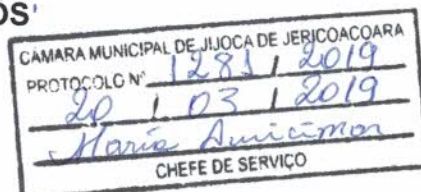 OS'
CÂMARA MUNICIPAL DE JIJOCA DE JERICOACOARA
PROTOCOLO Nº 1281 / 2019
20 / 03 / 2019
Maria
CHEFE DE SERVIÇO